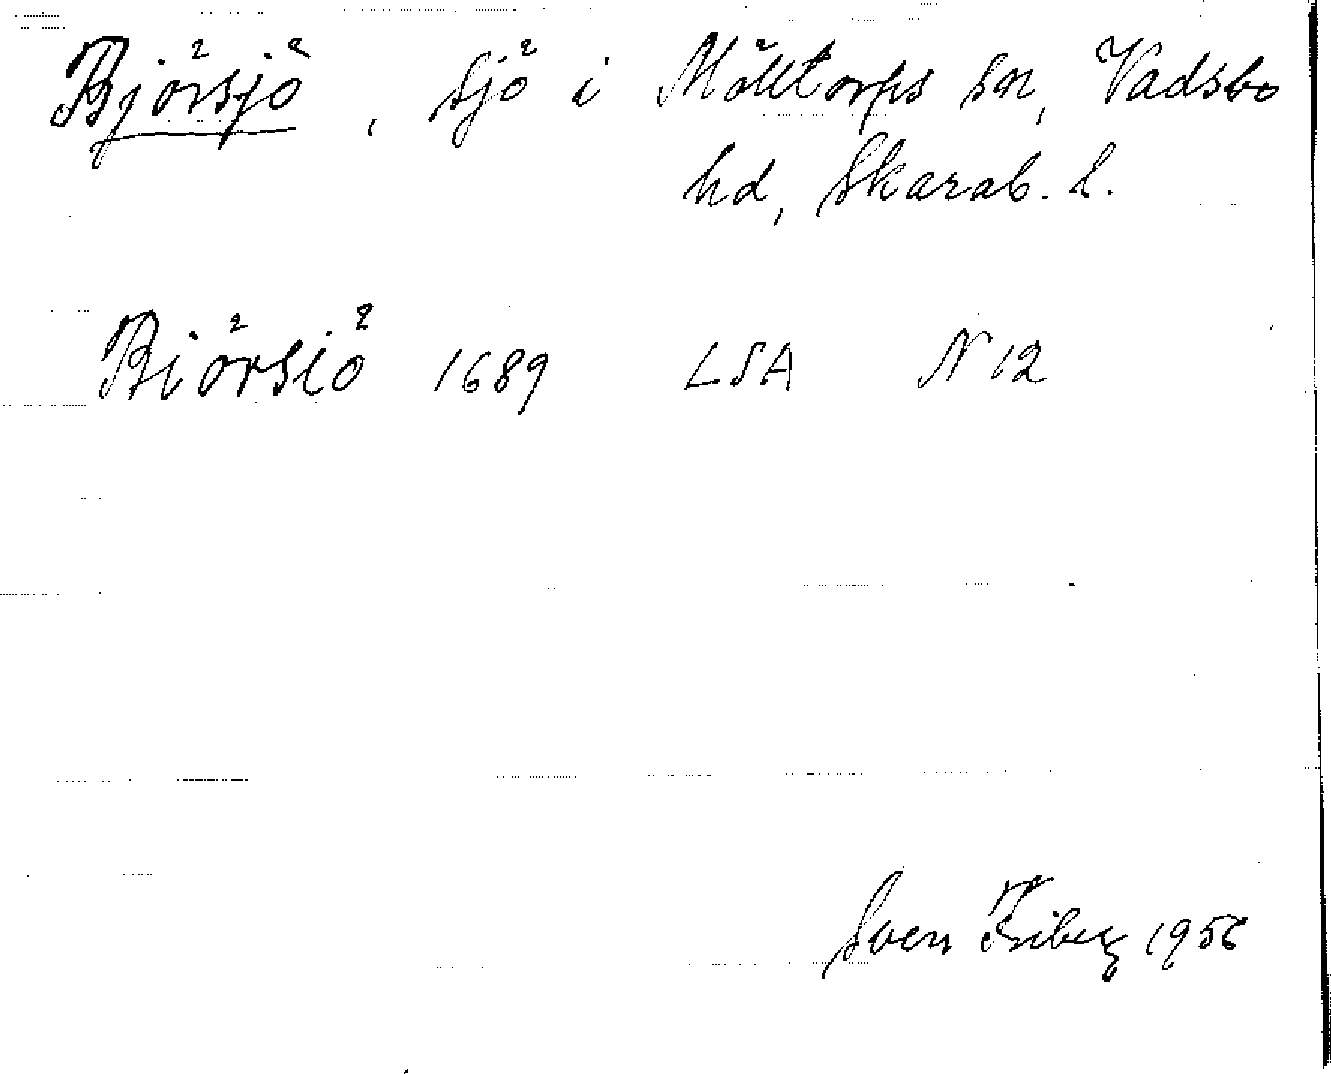 Björsjö, sjö i Mölltorps sn, Vadsbo
hd, Skarab. l.
Biörsiö 1689 LSA N 12
Sven Friberg 1956